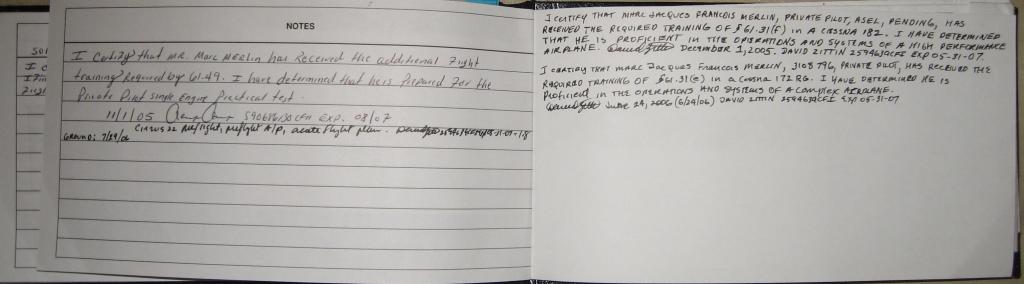 NOTES
I Certify that MR. Marc Merlin has Received the additional Flight
training Required by 61.49. I have determined that he is Prepared For the
Private Pilot Single Engine Practical test.
11/1/05 CFII EXP. 08/07
GROUND: 7/29/06 CIRRUS 22 Preflight, preflight A/P, create flight plan.
I CERTIFY THAT MARC JACQUES FRANCOIS MERLIN, PRIVATE PILOT, ASEL, PENDING, HAS
RECEIVED THE REQUIRED TRAINING OF §61.31(F) IN A CESSNA 182. I HAVE DETERMINED
THAT HE IS PROFICIENT IN THE OPERATIONS AND SYSTEMS OF A HIGH PERFORMANCE
AIRPLANE. DECEMBER 1, 2005. DAVID ZITTIN 2594631CFI EXP 05-31-07.
I CERTIFY THAT MARC JACQUES FRANCOIS MERLIN, 3108796, PRIVATE PILOT, HAS RECEIVED THE
REQUIRED TRAINING OF §61.31(e) IN a Cessna 172RG. I HAVE DETERMINED HE IS
PROFICIENT IN THE OPERATIONS AND SYSTEMS OF A COMPLEX AIRPLANE.
JUNE 24, 2006 (6/24/06) DAVID ZITTIN 2594631CFI EXP 05-31-07